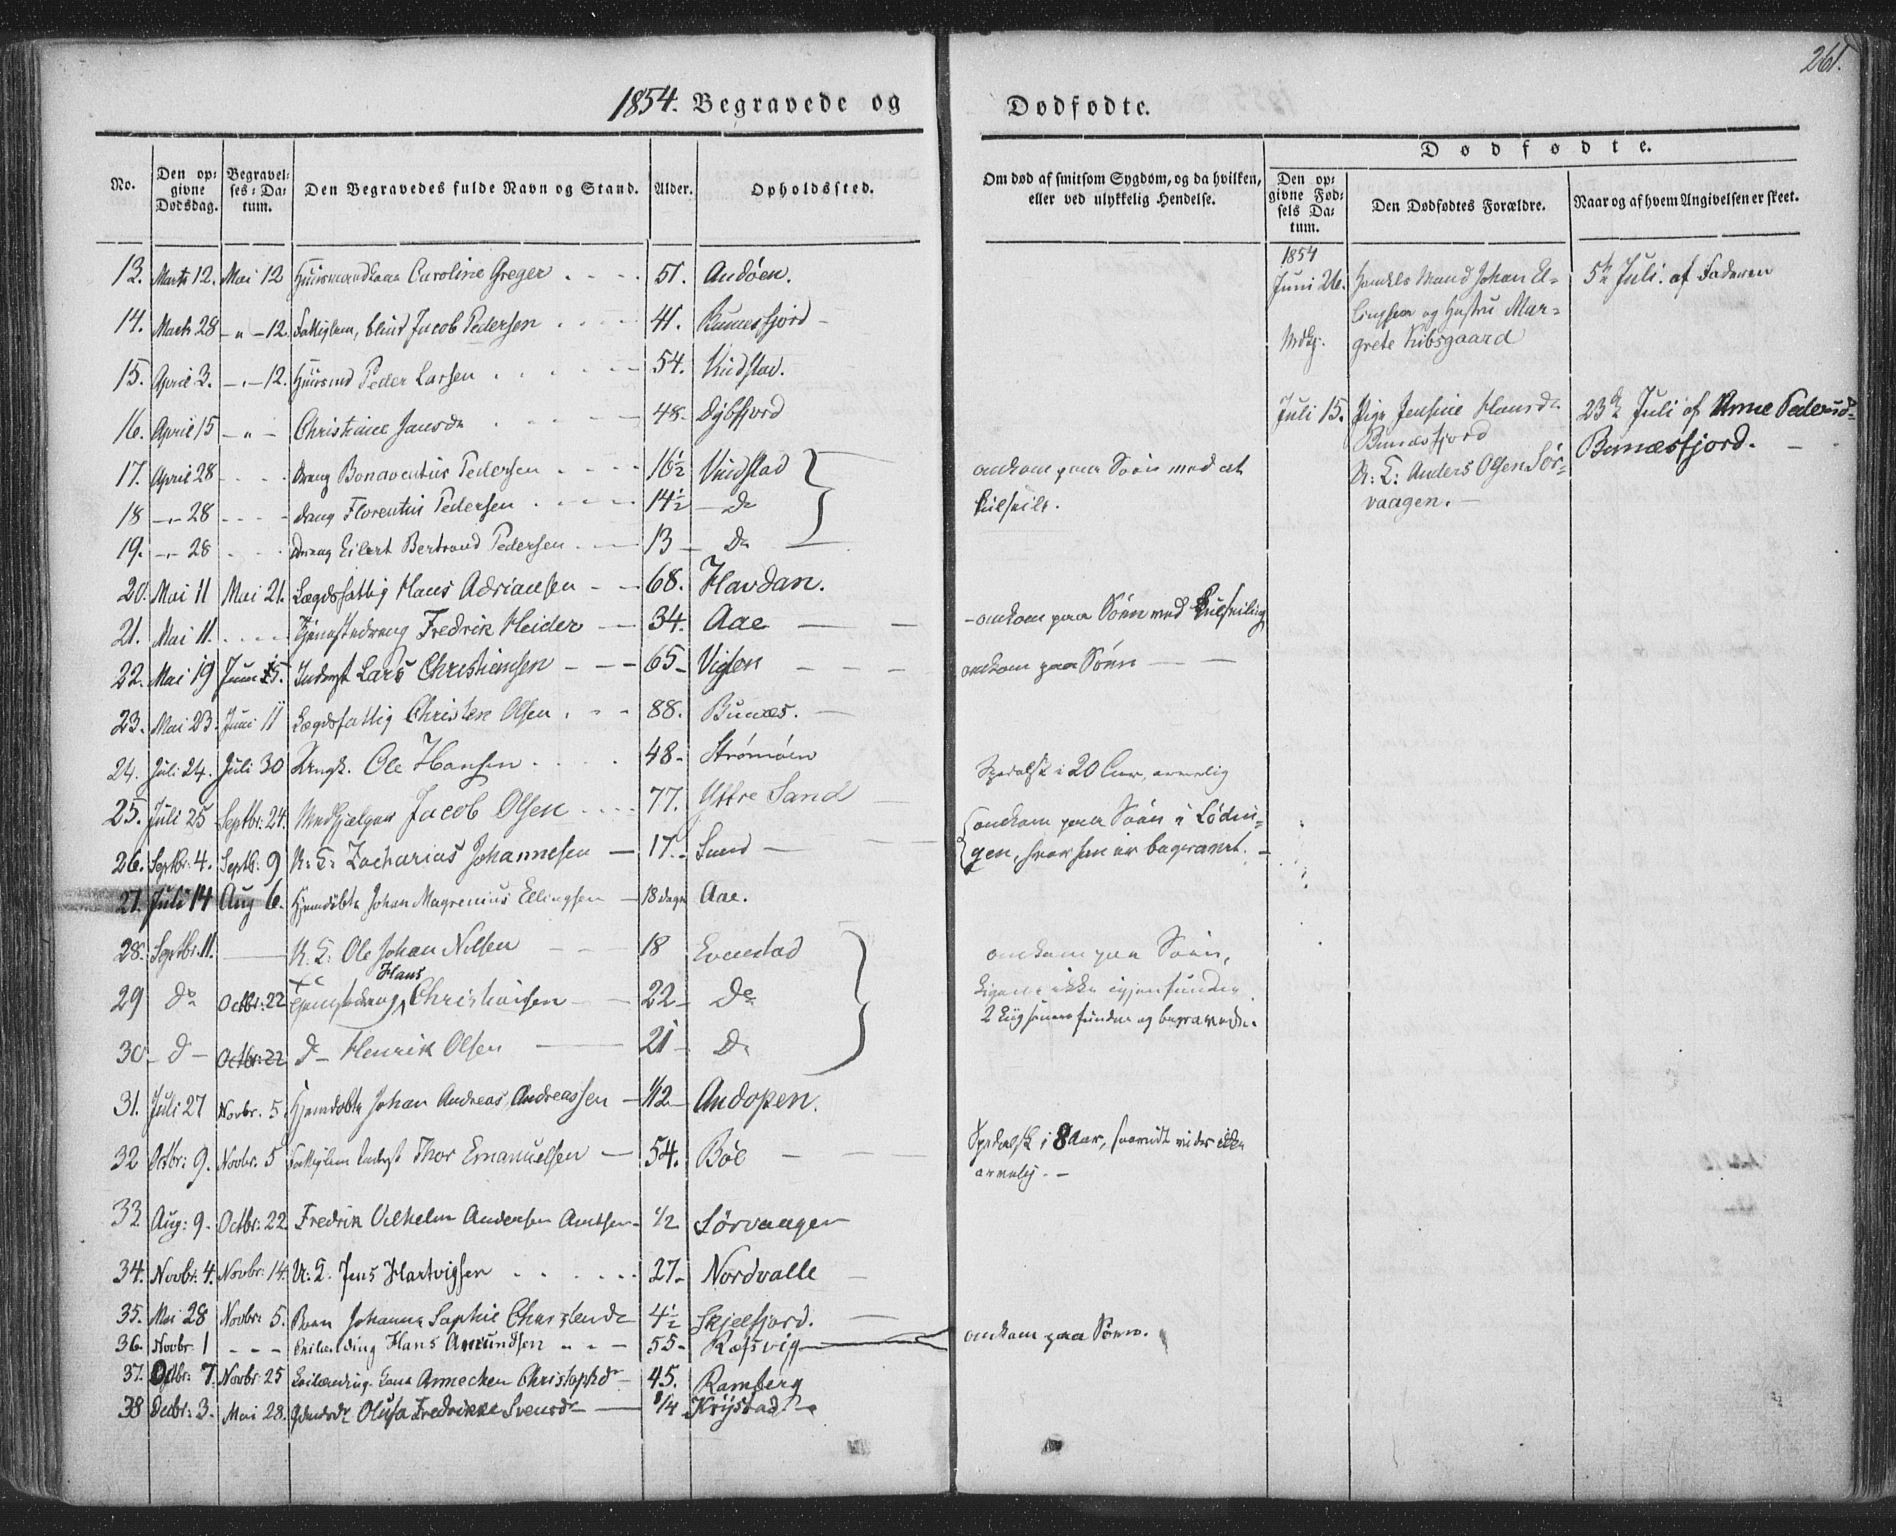 261.
1854. Begravede og Dødfødte.
No. Den opgivne Dødsdag. Begravelses-Datum. Den Begravedes fulde Navn og Stand. Alder. Opholdssted.
Om død af smitsom Sygdom, og da hvilken, eller ved ulykkelig Hendelse.
Dødfødte.
Den opgivne Fødsels Datum. Den Dødfødtes Forældre. Naar og af hvem Angivelsen er skeet.
13. Marts 12. Mai 12 Huusmandkone Caroline Greger 51. Andøen.
14. Marts 28 - " - 12. Fattiglem, blind Jacob Pedersen 41. Bunesfjord -
15. April 3. - " - 12. Huusmd Peder Larsen 54. Vindstad.
16. April 15 - " - Christine Jansdr 48- Dybfjord
17. April 28 - - - Dreng Bonaventus Pedersen 16½ Vindstad
18 - " - 28 - - - dreng Florentin Pedersen 14½ - Do
19. - " - 28 - - Dreng Eilert Bertrand Pedersen 13 - Do
omkom paa Søen med at
kulseile.
20. Mai 11 Mai 21. Lægdsfattig Hans Adriansen - - 68. Havdan.
21. Mai 11. - - - Tjenestedreng Fredrik Heider - 34. Aae - -
- omkom paa Søen ved Kulseiling
22. Mai 19 Juni 25. Inderst Lars Christiansen - - - 65- Vigten - - -
omkom paa Søen - -
23. Mai 23. Juni 11 Lægdsfattig Christen Olsen 88. Bunæs. -
24. Juli 24. Juli 30 Ole Hansen 48- Strømøen
Spedalsk i 20 Aar, arvelig
25. Juli 25 Septbr: 24. Medhjælper Jacob Olsen 77. Yttre Sand -
26. Septbr: 4. Septbr: 9 U: K: Zacharias Johannesen - 17. - Sund -
omkom paa Søen i Lødin-
gen, hvor han er begravet. -
27. Juli 14 Aug 6. Hjemdøbte Johan Magrenius Ellingsen - 18 dage Aae.
28. Septbr. 11. - U. K: Ole Johan Nilsen - - 18 Evenstad
29 do Octbr: 22 Tjenestedreng Hans Christiansen - 22 - Do
30 - d - Octbr: 22 d - Henrik Olsen - 21 - Do
omkom paa Søen,
Ligene ikke igjenfundne
2 Liig senere fundne og begravede.
31. Juli 27 Novbr. 5. Hjemdøbte Johan Andreas Andreassen - 1/12 - Andopen.
32 Octbr: 9. Novbr. 5 Fattiglem Inderst Thor Emanuelsen - 54. Bøe - -
Spedalsk i 8 Aar, saavidt vides ikke
arvelig. -
33 Aug: 9. Octbr: 22 Fredrik Vilhelm Andersen Amtsen - ½ Sørvaagen
34. Novbr. 4. Novbr. 14. U: K. Jens Hartvigsen 27- Nordvalle -
35. Mai 28 Novbr: 5. Barn Johanna Sophie Christensdr 4½ Skjelfjord. -
36. Novbr. 1 - - - Hans Amundsen - - - 55- Ræfsvig
omkom paa Søen.
37. Octbr: 7. Novbr. 25 Kone Annecken Christophdr - 45. Ramberg
38 Decbr: 3. Mai 28. Olufa Fredrikke Svensdr - 1/4 Krystad -
1854
Juni 26. Handels Mand Johan El-
lingsen og Hustru Mar-
grete Kibsgaard
Mdkj.
5te Juli. af Faderen
Juli 15. Pige Jensine Hansdr
Bunæsfjord
U: K: Anders Olsen Sør-
vaagen. -
23de Juli af Anne Pedersdr
Bunæsfjord. -